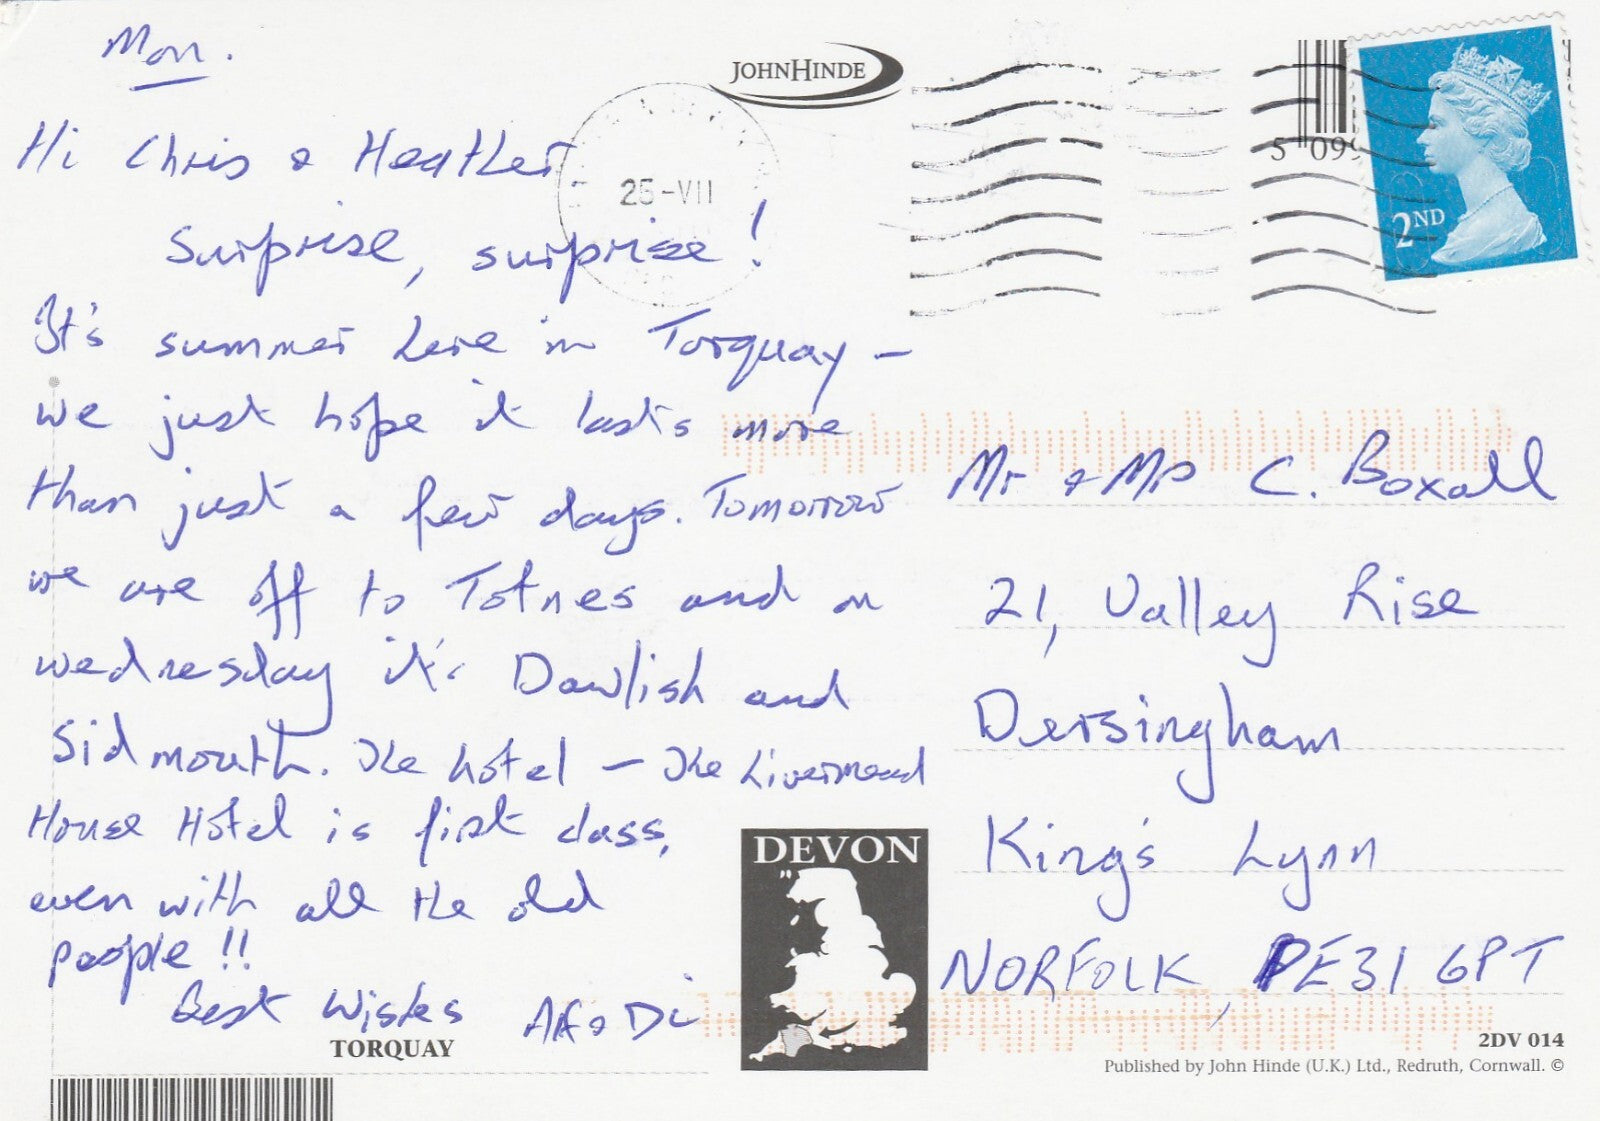 Mon.
JOHNHINDE
Hi Chris & Heather
25-VII
Surprise, surprise!
It's summer here in Torquay –
we just hope it lasts more
than just a few days. Tomorrow
we are off to Totnes and on
wednesday it's Dawlish and
Sidmouth. The hotel – The Livermead
House Hotel is first class,
even with all the old
people !!
Best Wishes Alf & Di
TORQUAY
5 099
2ND
Mr & Mrs C. Boxall
21, Valley Rise
Dersingham
King's Lynn
NORFOLK, PE31 6PT
DEVON
2DV 014
Published by John Hinde (U.K.) Ltd., Redruth, Cornwall. ©